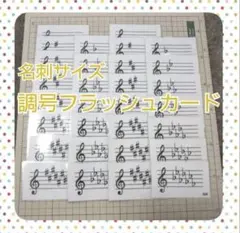 名刺サイズ
調号フラッシュカード